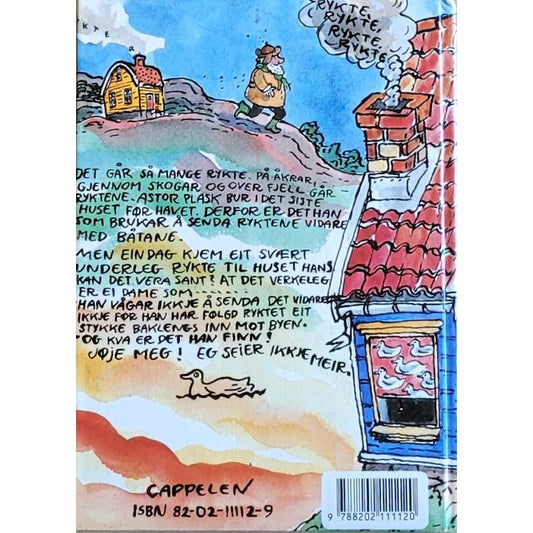 RYKTE
RYKTE,
RYKTE,
RYKTE,
RYKTE
DET GÅR SÅ MANGE RYKTE. PÅ ÅKRAR, I
GJENNOM SKOGAR OG OVER FJELL GÅR
RYKTENE. ASTOR PLASK BUR I DET SISTE
HUSET FØR HAVET. DERFOR ER DET HAN
SOM BRUKAR Å SENDA RYKTENE VIDARE
MED BÅTANE.
MEN EIN DAG KJEM EIT SVÆRT
UNDERLEG RYKTE TIL HUSET HANS
KAN DET VERA SANT? AT DET VERKELEG
ER EI DAME SOM ..........
HAN VÅGAR IKKJE Å SENDA DET VIDARE
IKKJE FØR HAN HAR FØLGD RYKTET EIT
STYKKE BAKLENGS INN MOT BYEN.
OG KVA ER DET HAN FINN!
JØJE MEG! EG SEIER IKKJE MEIR.
CAPPELEN
ISBN 82-02-11112-9
9 788202 111120